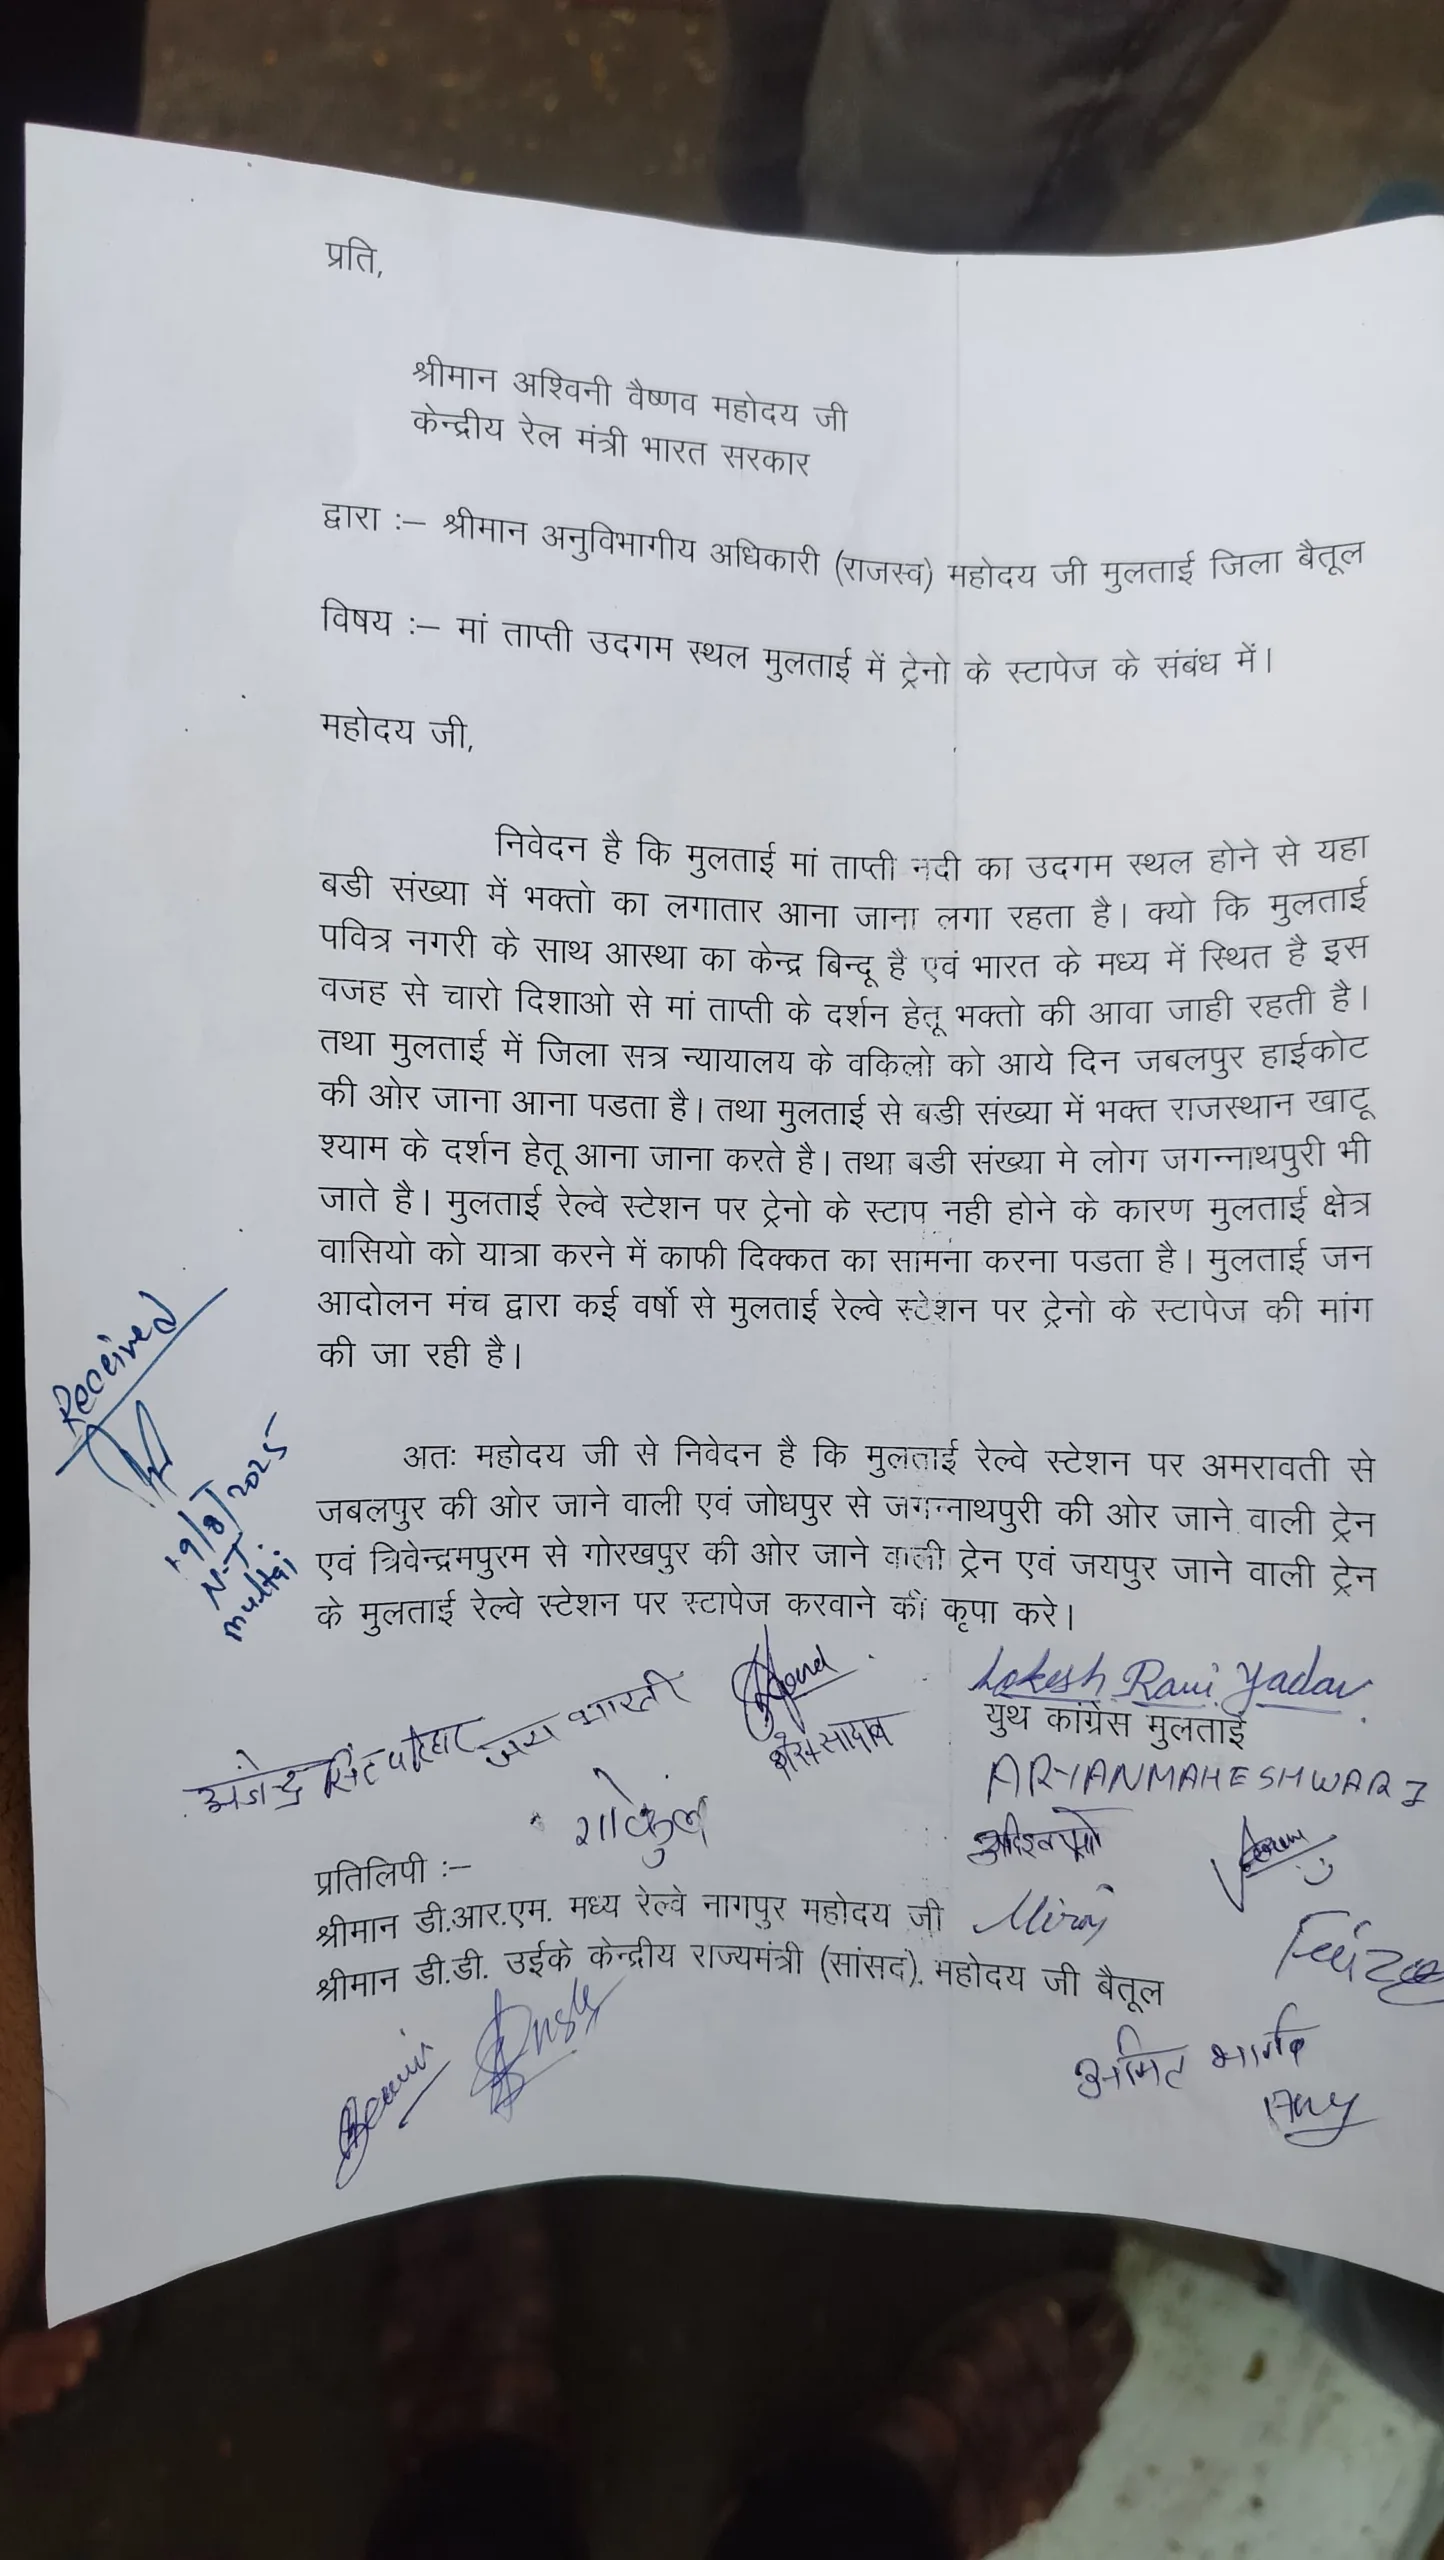 प्रति,
श्रीमान अश्विनी वैष्णव महोदय जी
केन्द्रीय रेल मंत्री भारत सरकार
द्वारा :– श्रीमान अनुविभागीय अधिकारी (राजस्व) महोदय जी मुलताई जिला बैतूल
विषय :– मां ताप्ती उदगम स्थल मुलताई में ट्रेनो के स्टापेज के संबंध में।
महोदय जी,
निवेदन है कि मुलताई मां ताप्ती नदी का उदगम स्थल होने से यहा
बडी संख्या में भक्तो का लगातार आना जाना लगा रहता है। क्यो कि मुलताई
पवित्र नगरी के साथ आस्था का केन्द्र बिन्दू है एवं भारत के मध्य में स्थित है इस
वजह से चारो दिशाओ से मां ताप्ती के दर्शन हेतू भक्तो की आवा जाही रहती है।
तथा मुलताई में जिला सत्र न्यायालय के वकिलो को आये दिन जबलपुर हाईकोट
की ओर जाना आना पडता है। तथा मुलताई से बडी संख्या में भक्त राजस्थान खाटू
श्याम के दर्शन हेतू आना जाना करते है। तथा बडी संख्या मे लोग जगन्नाथपुरी भी
जाते है। मुलताई रेल्वे स्टेशन पर ट्रेनो के स्टाप नही होने के कारण मुलताई क्षेत्र
वासियो को यात्रा करने में काफी दिक्कत का सामना करना पडता है। मुलताई जन
आदोलन मंच द्वारा कई वर्षो से मुलताई रेल्वे स्टेशन पर ट्रेनो के स्टापेज की मांग
की जा रही है।
Received
19/8/2025
N.T.
multai
अतः महोदय जी से निवेदन है कि मुलताई रेल्वे स्टेशन पर अमरावती से
जबलपुर की ओर जाने वाली एवं जोधपुर से जगन्नाथपुरी की ओर जाने वाली ट्रेन
एवं त्रिवेन्द्रमपुरम से गोरखपुर की ओर जाने वाली ट्रेन एवं जयपुर जाने वाली ट्रेन
के मुलताई रेल्वे स्टेशन पर स्टापेज करवाने की कृपा करे।
Lokesh Ravi Yadav
युथ कांग्रेस मुलताई
जय भारती
ARYAN MAHESHWARI
गोकुल
प्रतिलिपी :–
श्रीमान डी.आर.एम. मध्य रेल्वे नागपुर महोदय जी
श्रीमान डी.डी. उईके केन्द्रीय राज्यमंत्री (सांसद). महोदय जी बैतूल
अमित भार्गव